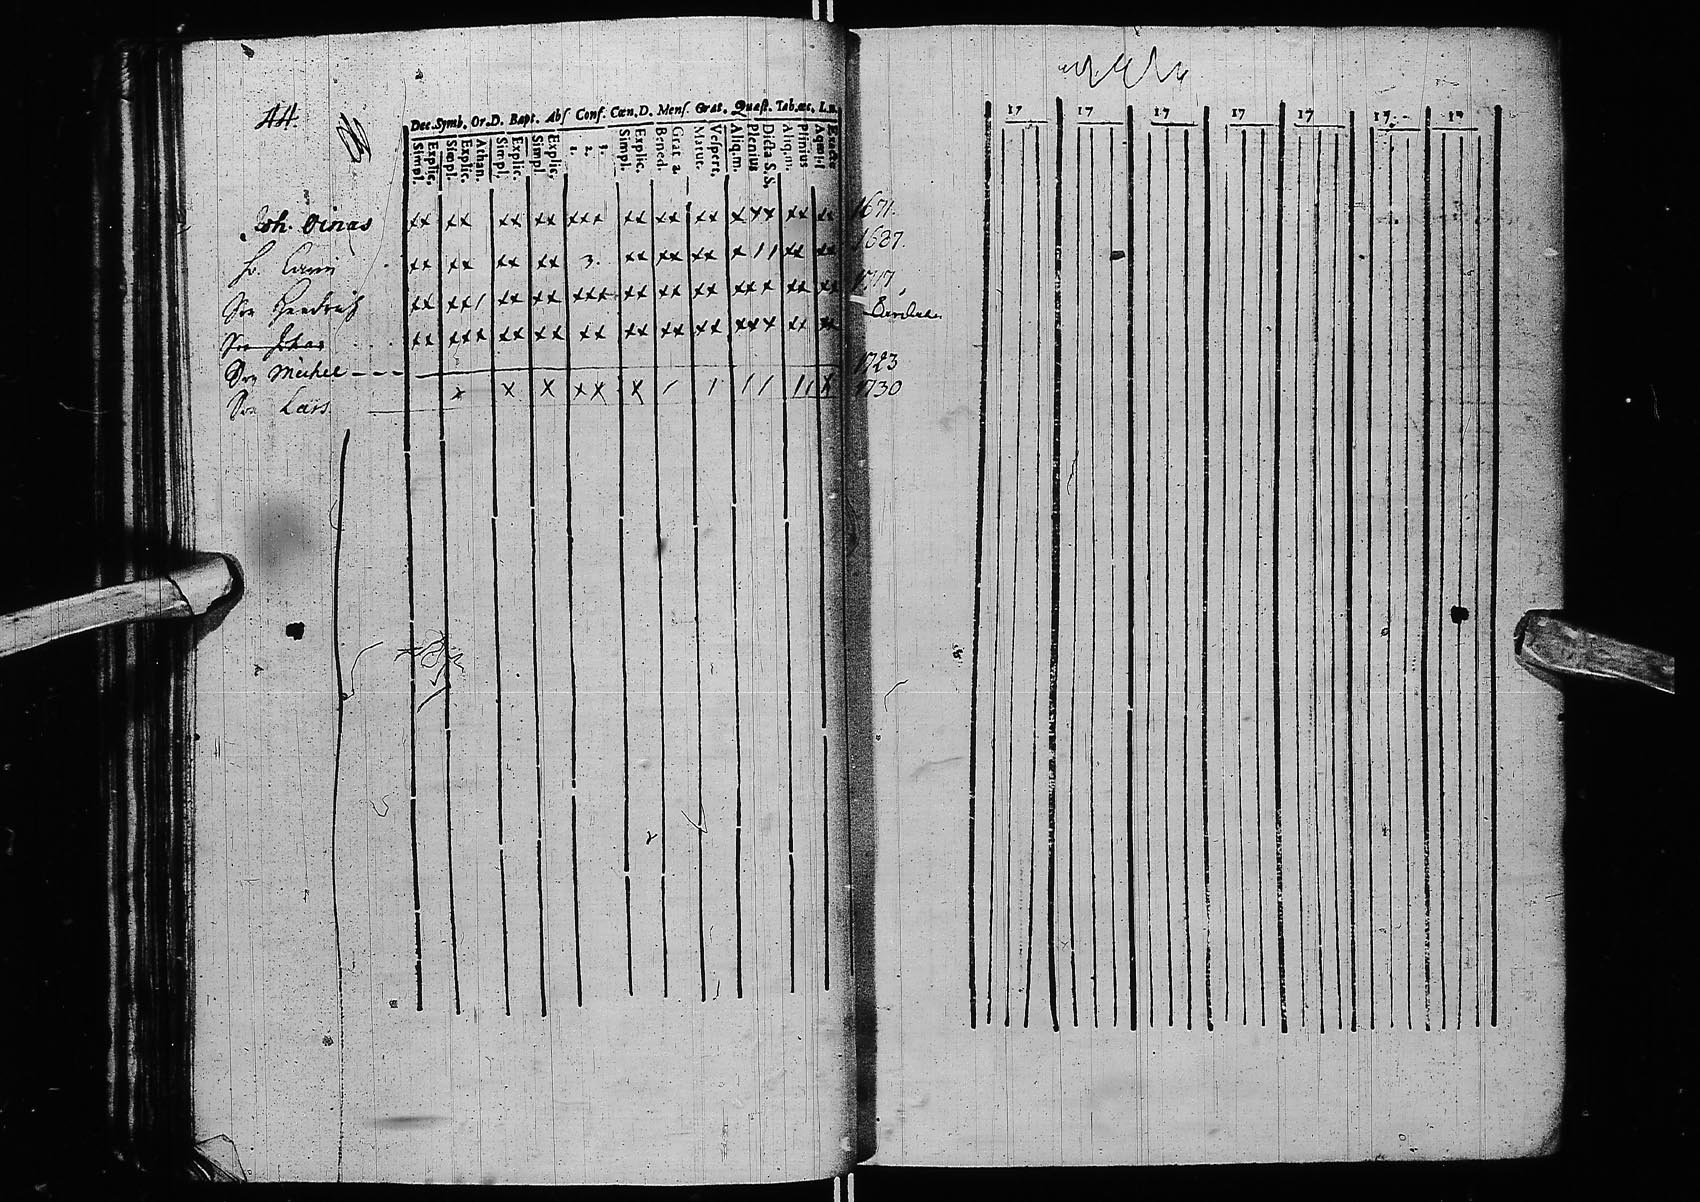 44.
Dec. Symb. Or. D. Bapt. Abſ Conf. Cœn. D. Menſ. Grat. Quæſt. Tab. œc. L. n.
Simpl. Explic. Simpl. Explic. Athan. Simpl. Explic. Simpl. Explic. 1. 2. 3. Simpl. Explic. Bened. Grat. a. Matut. Veſpert. Aliq. m. Plenius Dicta S. S. Aliq. m. Plinius Exacte
Joh. Oinas xx xx xx xx xxx xx xx xx xxx xx xx 1671.
h. Carin xx xx xx xx 3. xx xx xx x // xx xx 1687.
Son Hendrich xx xx/ xx xx xxx xx xx xx xxx xx xx 1717.
Son Johan xx xxx xx xx xx xx xx xx xxx xx xx
Son Michel 1723
Son Lars x x x xx x / / // // x 1730
17 17 17 17 17 17 17